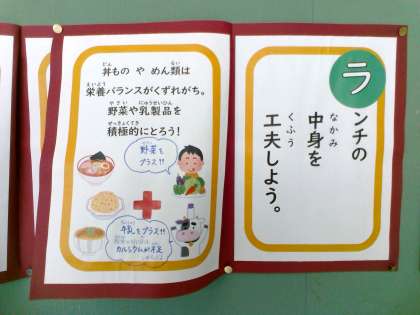 丼ものやめん類は
栄養バランスがくずれがち。
野菜や乳製品を
積極的にとろう!
野菜を
プラス!!
牛乳をプラス!!
カルシウムが不足
ランチの
中身を
工夫しよう。